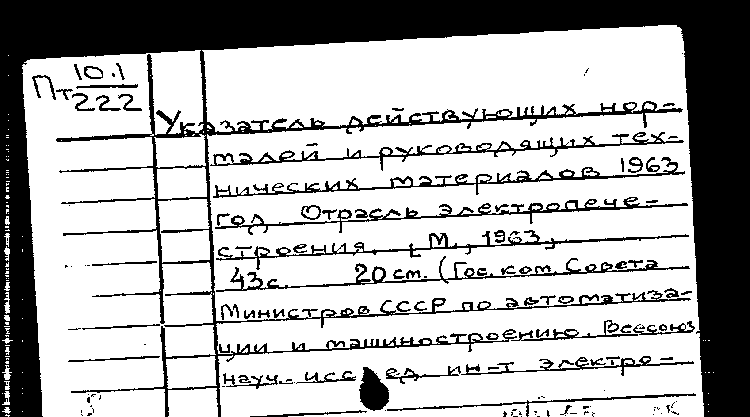 Пт 10.1
222
Указатель действующих нор-
малей и руководящих тех-
нических материалов 1963
год. Отрасль электропече-
строения. [М., 1963]
43с. 20 см. (Гос. ком. Совета
Министров СССР по автоматиза-
ции и машиностроению. Всесоюз.
науч.-исслед. ин-т электро-